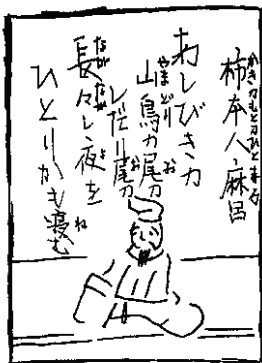 柿本人麻呂
かきのもとのひとまろ
あしびきの
山鳥の尾の
やまどり お
しだり尾の
お
長々し夜を
ながなが よ
ひとりかも寝む
ね